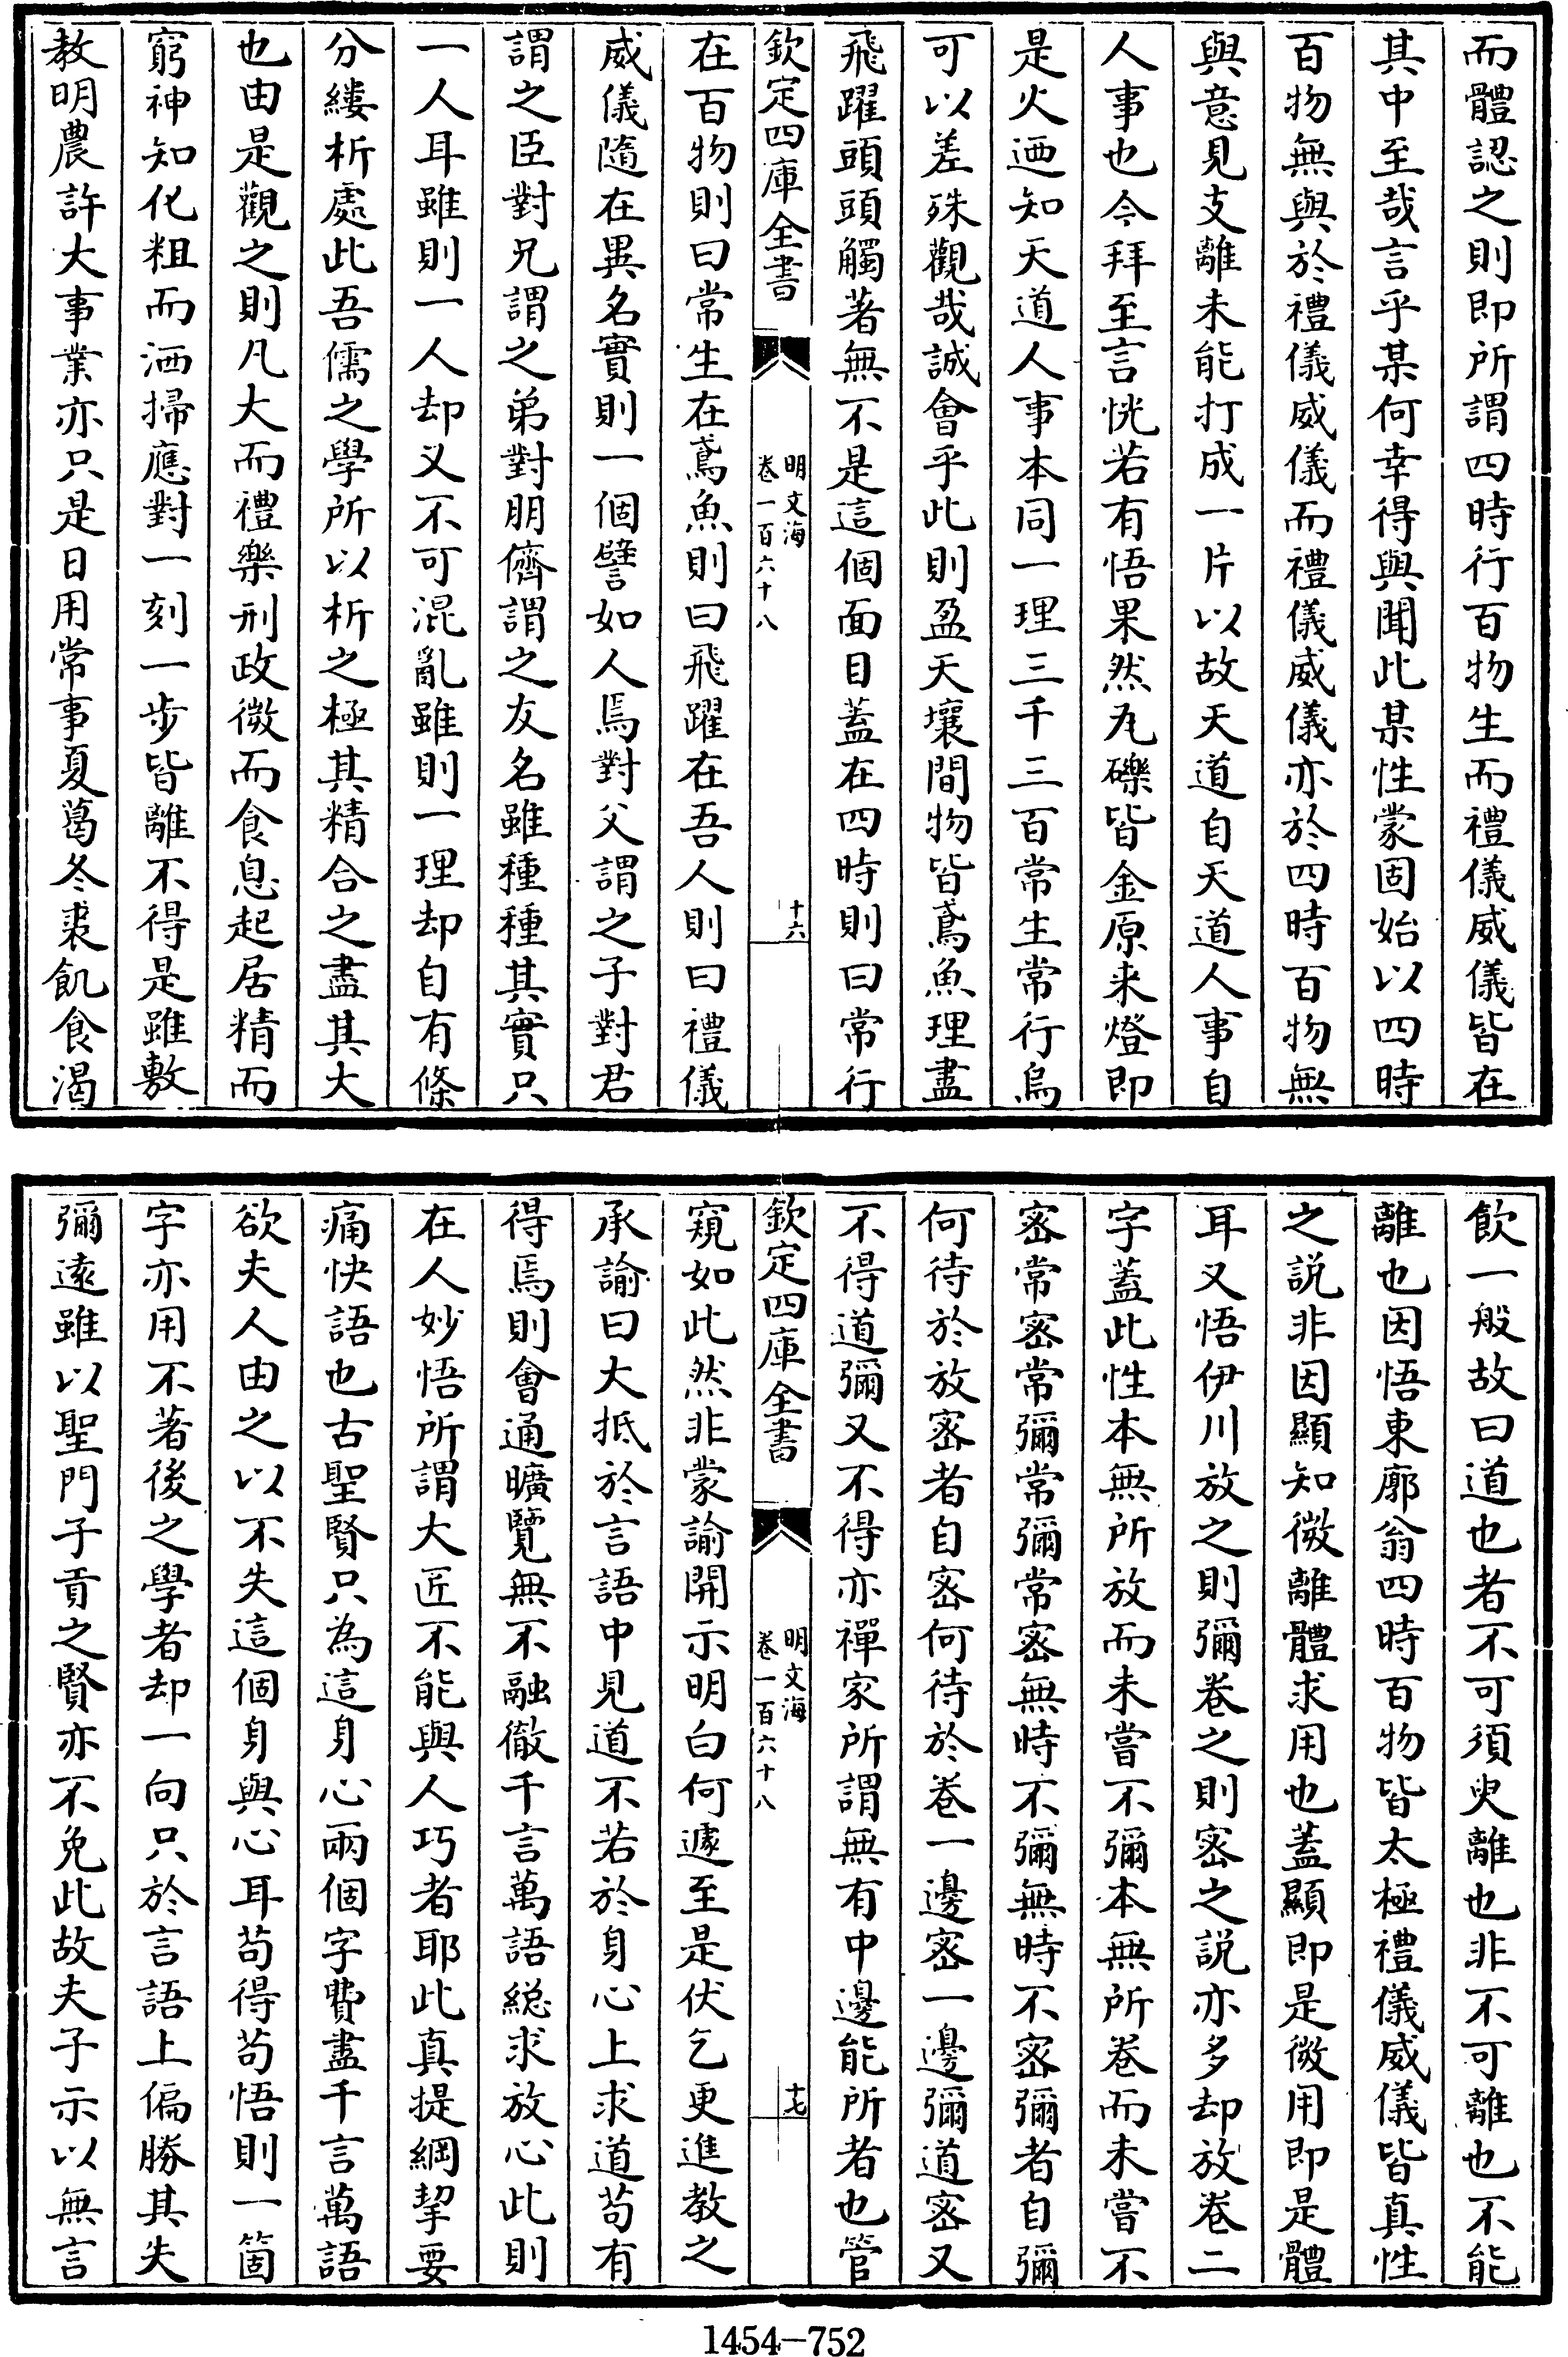 而體認之則即所謂四時行百物生而禮儀威儀皆在
其中至哉言乎某何幸得與聞此某性蒙固始以四時
百物無與於禮儀威儀而禮儀威儀亦於四時百物無
與意見支離未能打成一片以故天道自天道人事自
人事也今拜至言恍若有悟果然瓦礫皆金原来燈即
是火迺知天道人事本同一理三千三百常生常行烏
可以差殊觀哉誠會乎此則盈天壤間物皆鳶魚理盡
飛躍頭頭觸著無不是這個面目蓋在四時則曰常行
欽定四庫全書
明文海
卷一百六十八
十六
在百物則曰常生在鳶魚則曰飛躍在吾人則曰禮儀
威儀隨在異名實則一個譬如人焉對父謂之子對君
謂之臣對兄謂之弟對朋儕謂之友名雖種種其實只
一人耳雖則一人却又不可混亂雖則一理却自有條
分縷析處此吾儒之學所以析之極其精合之盡其大
也由是觀之則凡大而禮樂刑政微而食息起居精而
窮神知化粗而洒掃應對一刻一步皆離不得是雖敷
教明農許大事業亦只是日用常事夏葛冬裘飢食渴
飲一般故曰道也者不可須臾離也非不可離也不能
離也因悟東廓翁四時百物皆太極禮儀威儀皆真性
之説非因顯知微離體求用也蓋顯即是微用即是體
耳又悟伊川放之則彌卷之則宻之説亦多却放卷二
字蓋此性本無所放而未嘗不彌本無所卷而未嘗不
宻常宻常彌常彌常宻無時不彌無時不宻彌者自彌
何待於放宻者自宻何待於卷一邊宻一邊彌道宻又
不得道彌又不得亦禪家所謂無有中邊能所者也管
欽定四庫全書
明文海
卷一百六十八
十七
窺如此然非蒙諭開示明白何遽至是伏乞更進教之
承諭曰大抵於言語中見道不若於身心上求道苟有
得焉則會通曠覽無不融徹千言萬語総求放心此則
在人妙悟所謂大匠不能與人巧者耶此真提綱挈要
痛快語也古聖賢只為這身心兩個字費盡千言萬語
欲夫人由之以不失這個身與心耳苟得苟悟則一箇
字亦用不著後之學者却一向只於言語上偏勝其失
彌遠雖以聖門子貢之賢亦不免此故夫子示以無言
1454-752